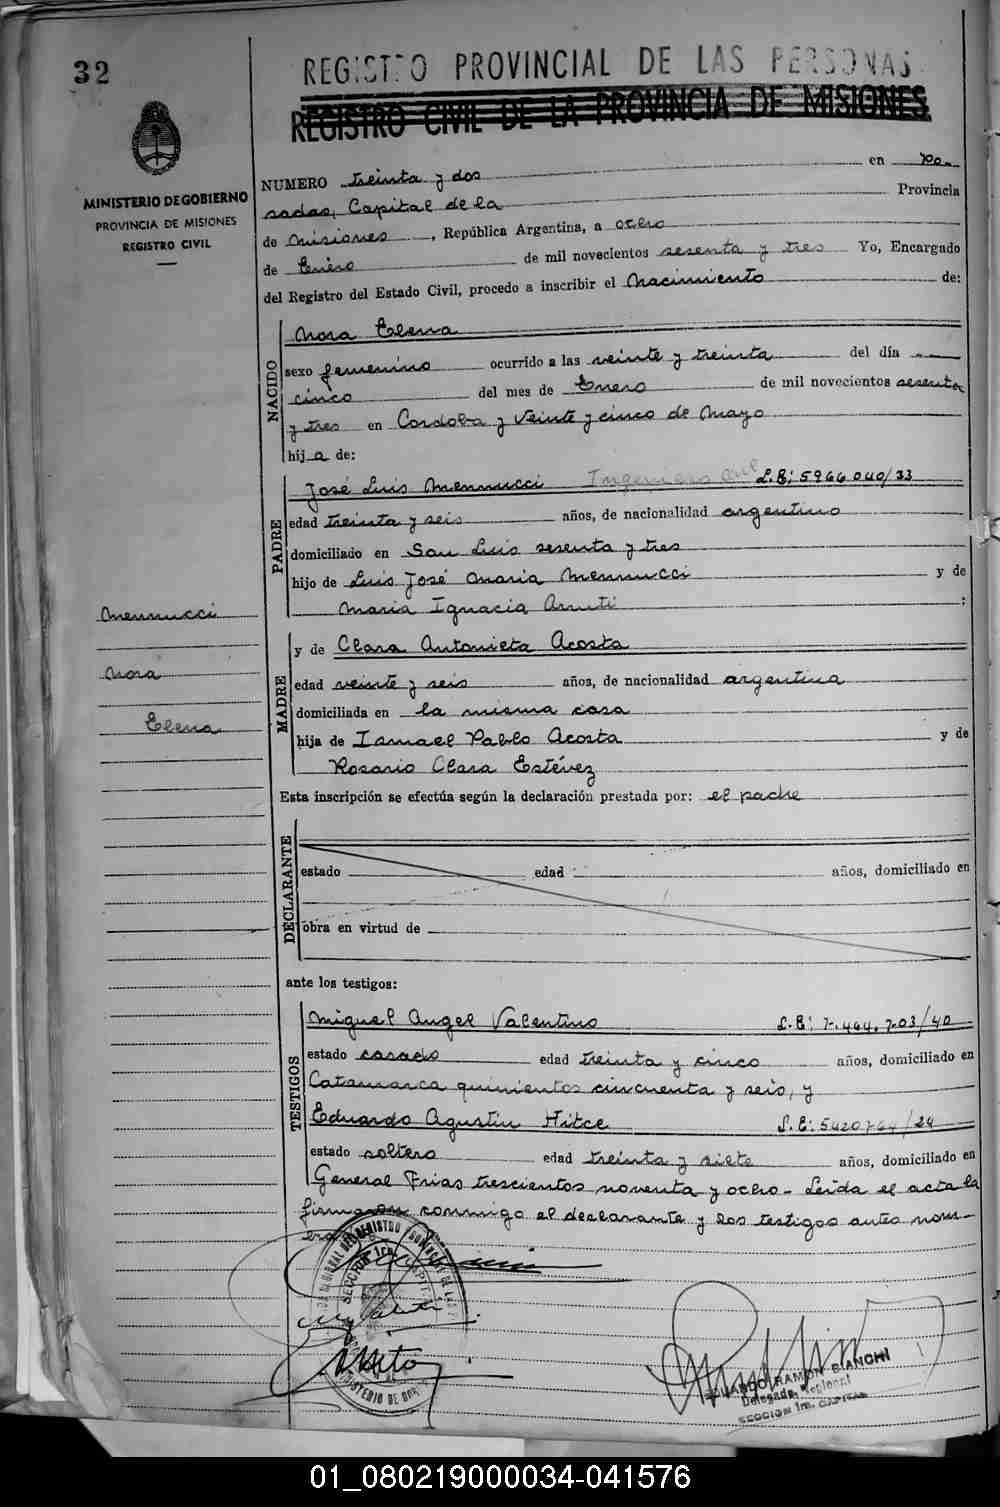 32
REGISTRO PROVINCIAL DE LAS PERSONAS
REGISTRO CIVIL DE LA PROVINCIA DE MISIONES
MINISTERIO DE GOBIERNO
PROVINCIA DE MISIONES
REGISTRO CIVIL
NUMERO treinta y dos en Po-
sadas, Capital de la Provincia
de Misiones, República Argentina, a ocho
de Enero de mil novecientos sesenta y tres Yo, Encargado
del Registro del Estado Civil, procedo a inscribir el Nacimiento de:
NACIDO
Nora Elena
sexo femenino ocurrido a las veinte y treinta del día
cinco del mes de Enero de mil novecientos sesenta
y tres en Cordoba y Veinte y cinco de Mayo
hij a de:
PADRE
José Luis Mennucci Ingeniero Civil L.E: 5966040/33
edad treinta y seis años, de nacionalidad argentino
domiciliado en San Luis sesenta y tres
hijo de Luis José Maria Mennucci y de
Maria Ignacia Arruti ;
Mennucci
Nora
Elena
MADRE
y de Clara Antonieta Acosta
edad veinte y seis años, de nacionalidad argentina
domiciliada en la misma casa
hija de Ismael Pablo Acosta y de
Rosario Clara Estévez
Esta inscripción se efectúa según la declaración prestada por: el padre
DECLARANTE
estado edad años, domiciliado en
obra en virtud de
ante los testigos:
TESTIGOS
Miguel Angel Valentino L.E: 7.464.703/40
estado casado edad treinta y cinco años, domiciliado en
Catamarca quinientos cincuenta y seis, y
Eduardo Agustin Hitce L.E: 5420764/24
estado soltero edad treinta y siete años, domiciliado en
General Frias trescientos noventa y ocho - Leída el acta la
firmaron conmigo el declarante y los testigos antes nom-
EDUARDO RAMON BIANCHI
Delegado Regional
SECCION 1ra. CAPITAL
01_080219000034-041576